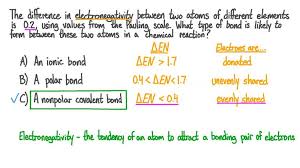 The difference in electronegativity between two atoms of different elements
is 0.2, using values from the Pauling scale. What type of bond is likely to
form between these two atoms in a chemical reaction?
ΔEN Electrons are...
A) An ionic bond ΔEN > 1.7 donated
B) A polar bond 0.4 < ΔEN < 1.7 unevenly shared
✓C) A nonpolar covalent bond ΔEN < 0.4 evenly shared
Electronegativity - the tendency of an atom to attract a bonding pair of electrons